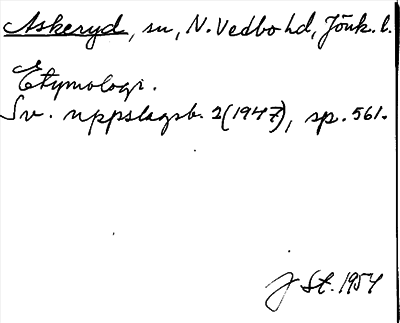 Askeryd, sn, N. Vedbo hd, Jönk. l.
Etymologi.
Sv. uppslagsb. 2 (1947), sp. 561.
J St. 1954